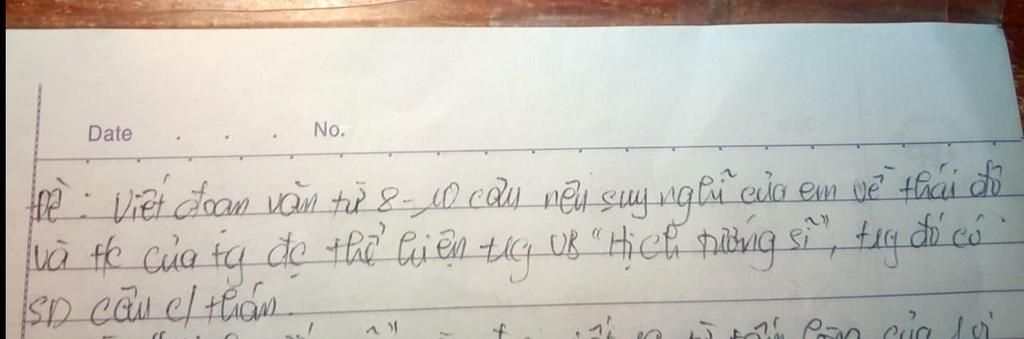 Date . . . No.
Đề : Viết đoạn văn từ 8-10 câu nêu suy nghĩ của em về thái độ
và tc của tg đc thể hiện tng VB "Hịch tướng sĩ", tng đó có
SD câu c/ thán.
của